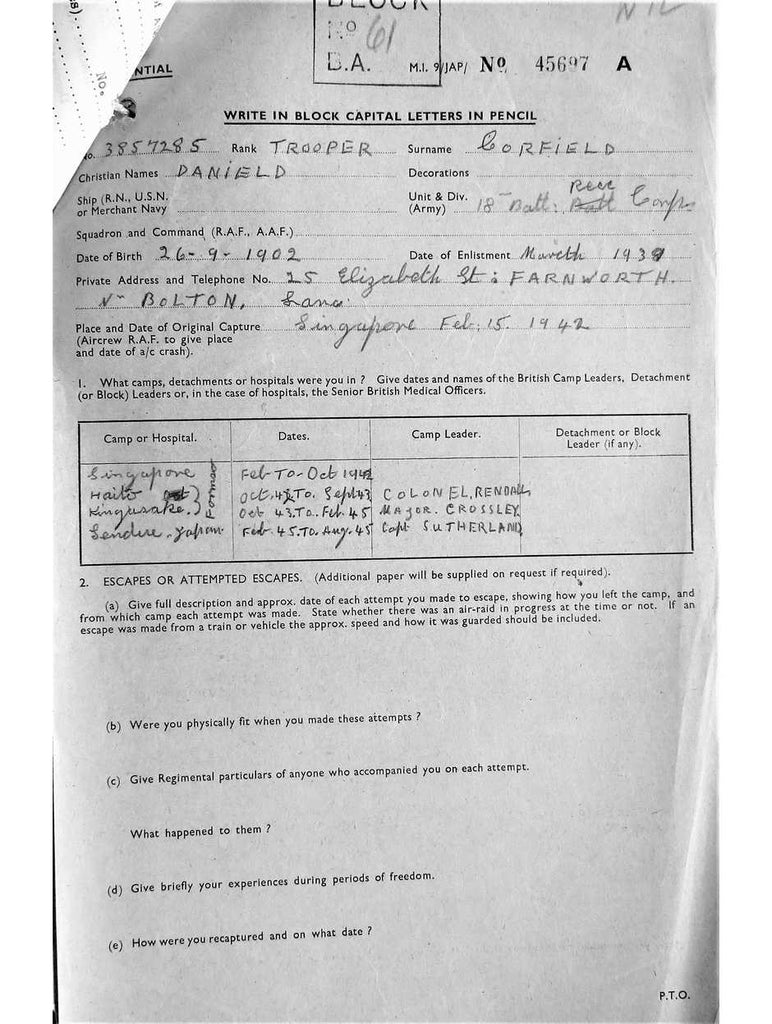 BLOCK
No 61
B.A.
NIL
NTIAL
No.
M.I. 9/JAP/ No. 45697 A
WRITE IN BLOCK CAPITAL LETTERS IN PENCIL
No. 3857285 Rank TROOPER Surname CORFIELD
Christian Names DANIELD Decorations
Ship (R.N., U.S.N. or Merchant Navy
Unit & Div. (Army) 18 Batt: Recc Batt Corps
Squadron and Command (R.A.F., A.A.F.)
Date of Birth 26-9-1902 Date of Enlistment March 1939
Private Address and Telephone No. 25 Elizabeth St: FARNWORTH.
Nr BOLTON, Lanc.
Place and Date of Original Capture Singapore Feb: 15. 1942
(Aircrew R.A.F. to give place
and date of a/c crash).
1. What camps, detachments or hospitals were you in ? Give dates and names of the British Camp Leaders, Detachment
(or Block) Leaders or, in the case of hospitals, the Senior British Medical Officers.
Camp or Hospital. Dates. Camp Leader. Detachment or Block
Leader (if any).
Singapore Feb To Oct 1942
Haito Oct. 42 To. Sept 43 COLONEL, RENDALL
Kingusake. Formosa Oct 43. To. Feb. 45 MAJOR. CROSSLEY
Sendure. Japan Feb. 45. To. Aug. 45 Capt SUTHERLAND
2. ESCAPES OR ATTEMPTED ESCAPES. (Additional paper will be supplied on request if required).
(a) Give full description and approx. date of each attempt you made to escape, showing how you left the camp, and
from which camp each attempt was made. State whether there was an air-raid in progress at the time or not. If an
escape was made from a train or vehicle the approx. speed and how it was guarded should be included.
(b) Were you physically fit when you made these attempts ?
(c) Give Regimental particulars of anyone who accompanied you on each attempt.
What happened to them ?
(d) Give briefly your experiences during periods of freedom.
(e) How were you recaptured and on what date ?
P.T.O.